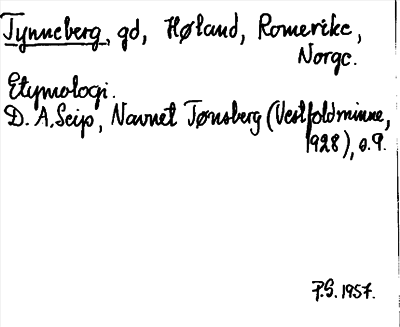 Tynneberg, gd, Høland, Romerike,
Norge.
Etymologi.
D. A. Seip, Navnet Tønsberg (Vestfoldminne,
1928), s. 9.
P.S. 1957.